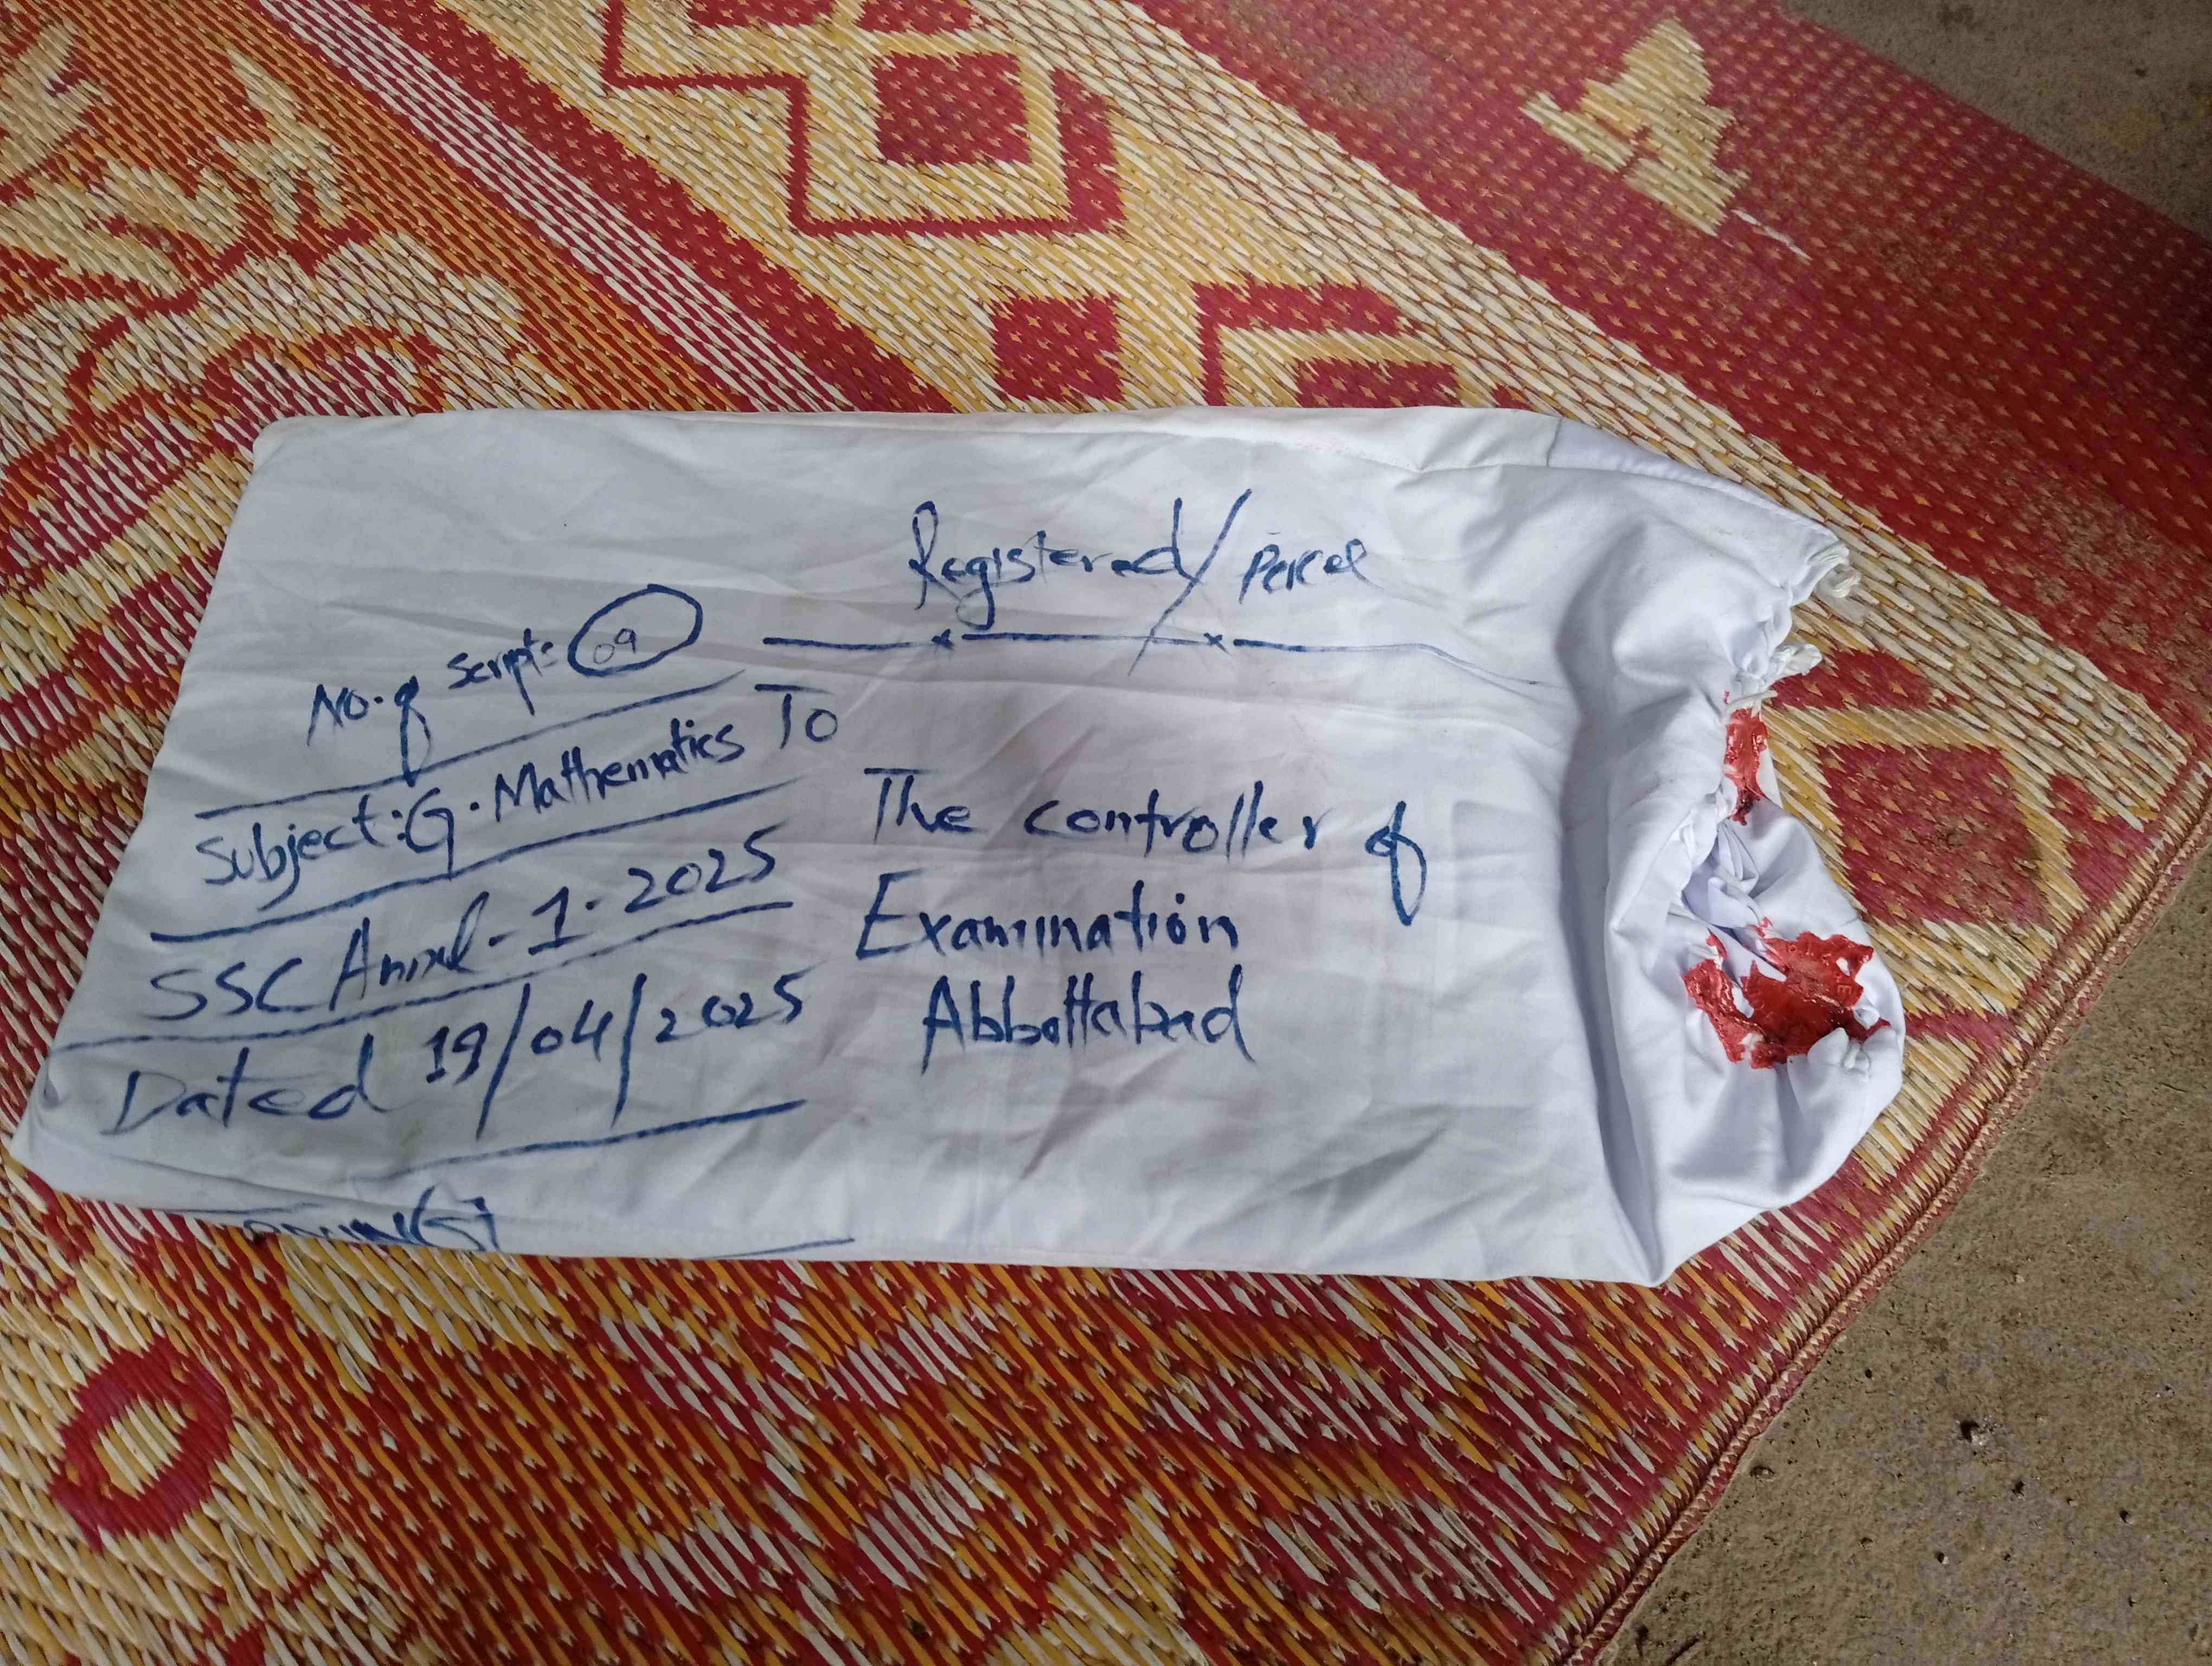 Registered/ Percel
No. of Scripts 09
Subject: G. Mathematics
SSC Annual-1-2025
Dated 19/04/2025
To
The controller of
Examination
Abbottabad